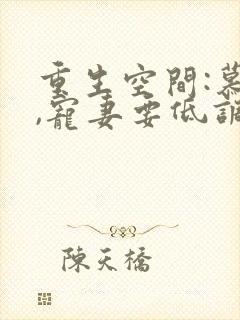 重生空間:慕
,寵妻要低調
陳天橋